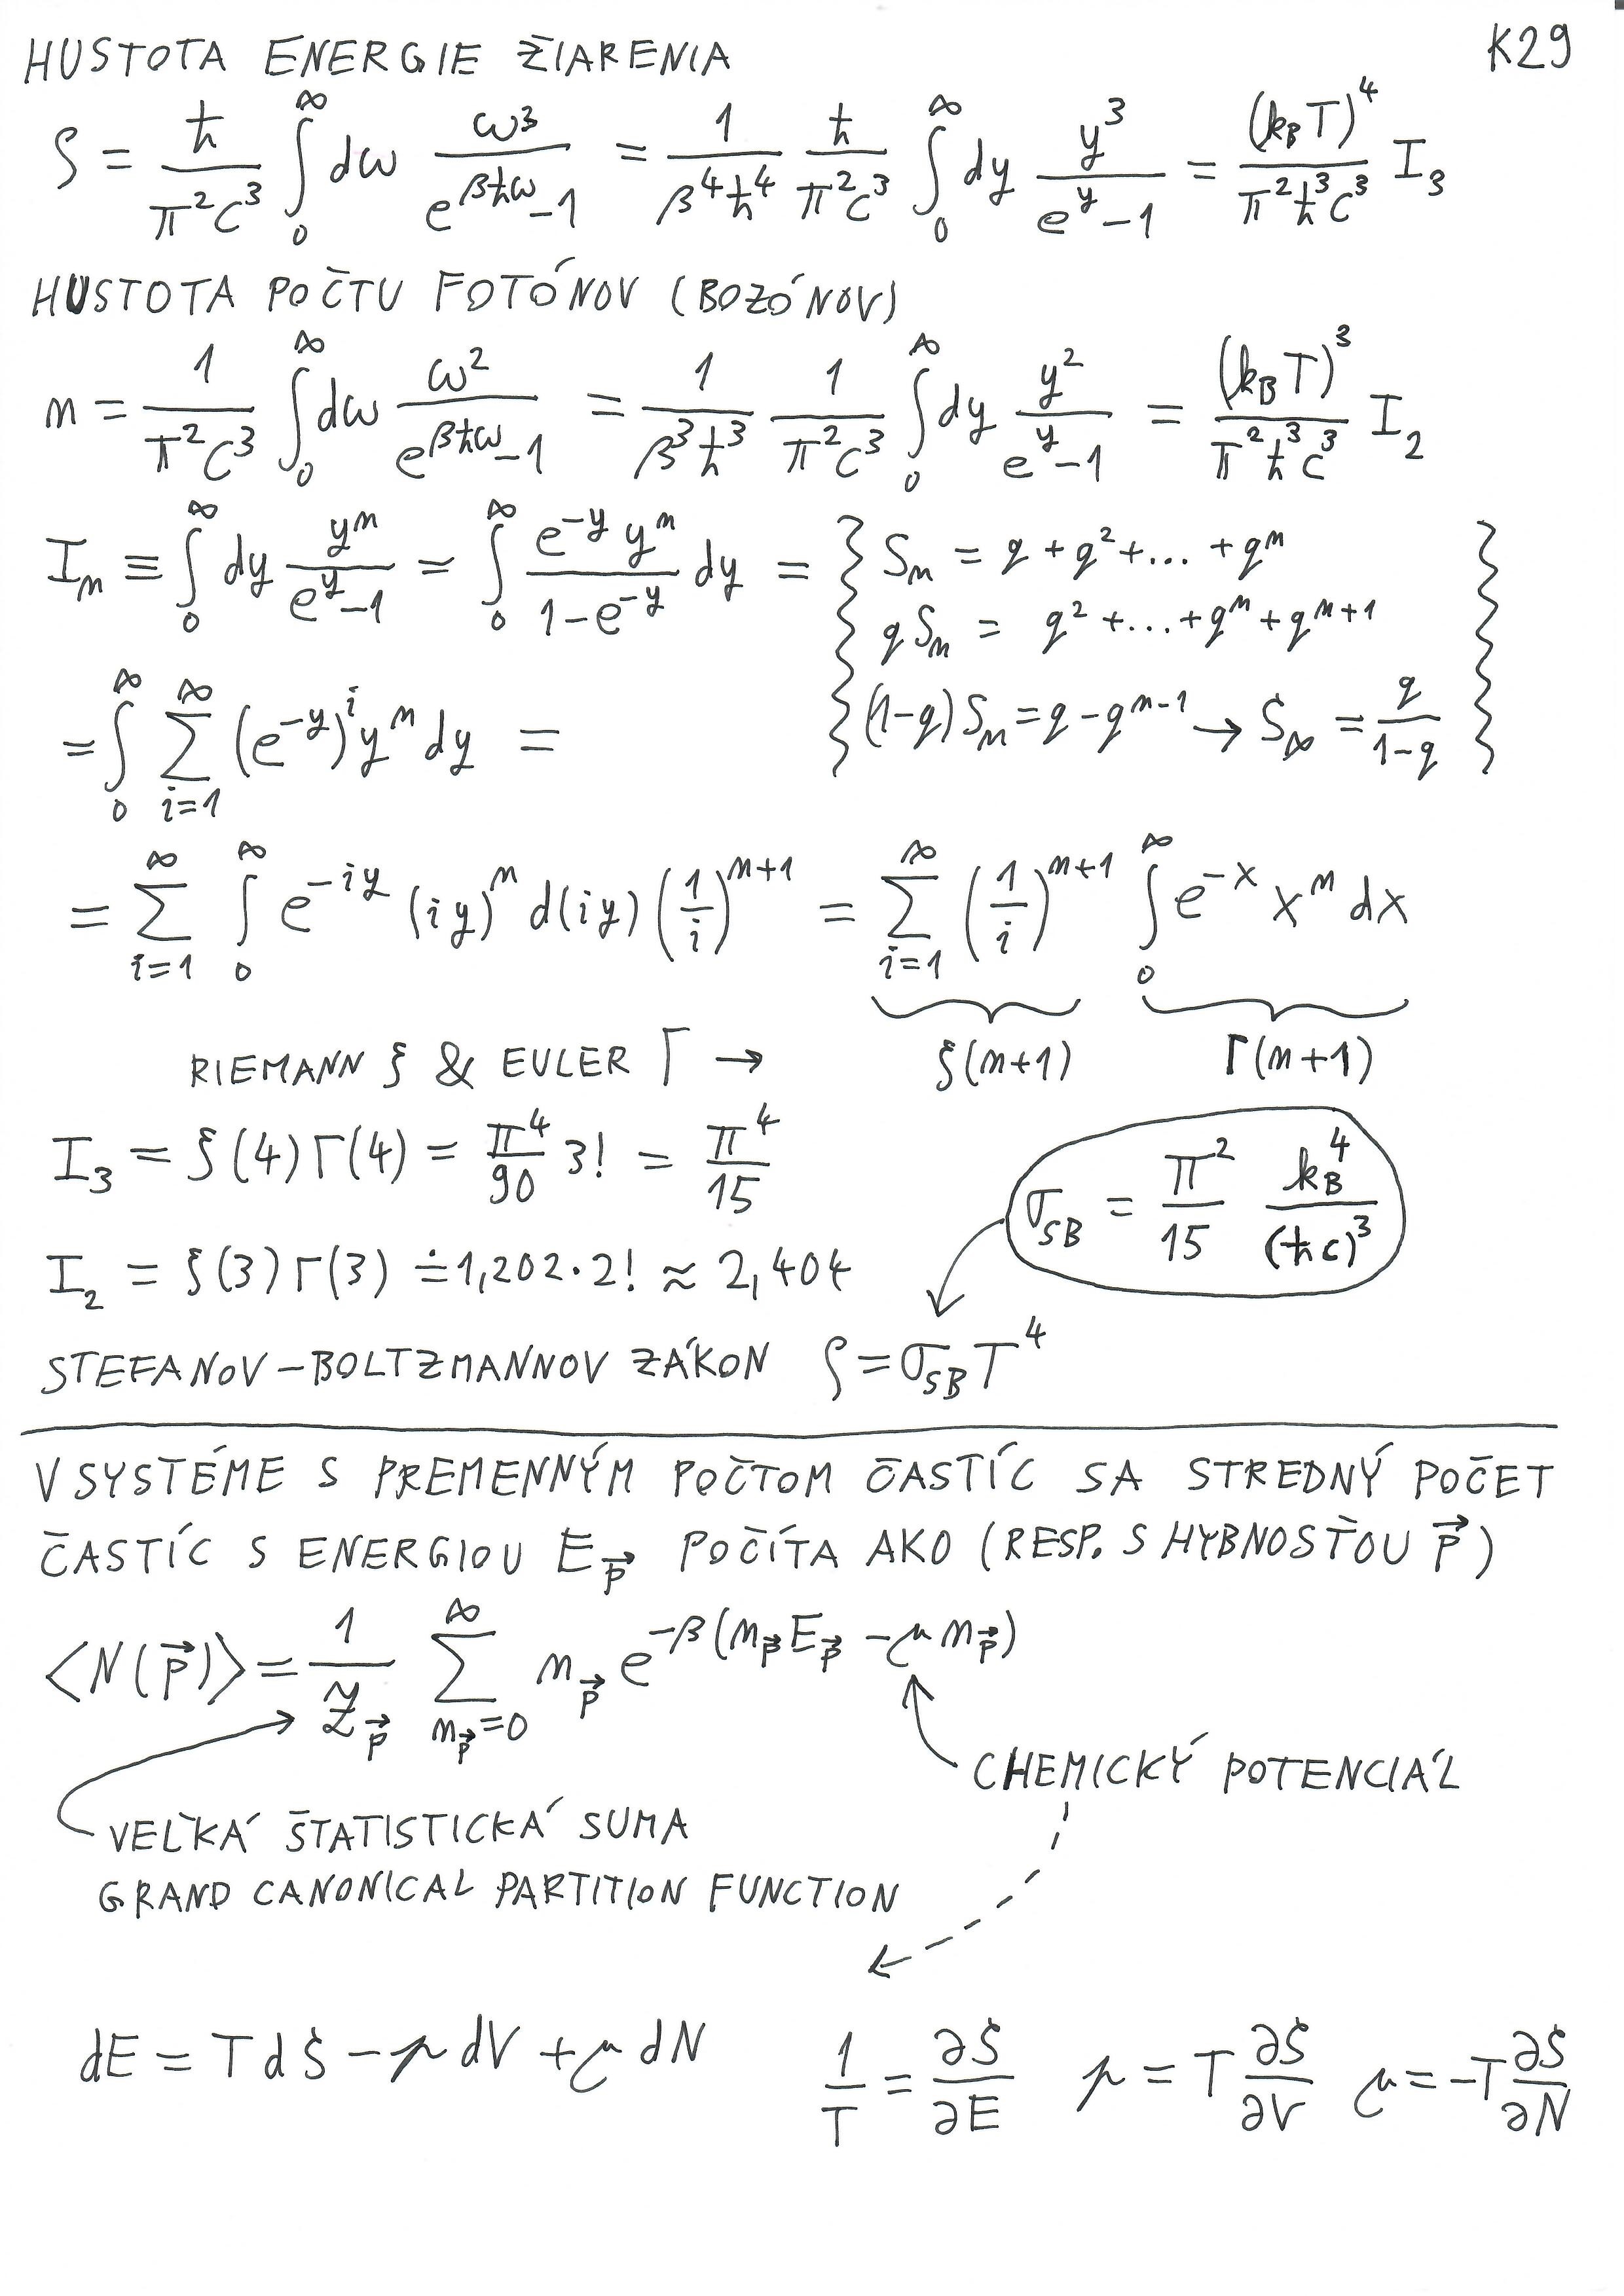 HUSTOTA ENERGIE ŽIARENIA K29
ρ = ħ/(π²c³) ∫₀^∞ dω ω³/(e^{βħω}-1) = 1/(β⁴ħ⁴) ħ/(π²c³) ∫₀^∞ dy y³/(e^y-1) = (k_B T)⁴/(π²ħ³c³) I₃
HUSTOTA POČTU FOTÓNOV (BOZÓNOV)
n = 1/(π²c³) ∫₀^∞ dω ω²/(e^{βħω}-1) = 1/(β³ħ³) 1/(π²c³) ∫₀^∞ dy y²/(e^y-1) = (k_B T)³/(π²ħ³c³) I₂
I_n ≡ ∫₀^∞ dy y^n/(e^y-1) = ∫₀^∞ e^{-y} y^n/(1-e^{-y}) dy = { S_n = q + q² + ... + q^n
q S_n = q² + ... + q^n + q^{n+1}
(1-q) S_n = q - q^{n-1} → S_∞ = q/(1-q) }
= ∫₀^∞ ∑_{i=1}^∞ (e^{-y})^i y^n dy =
= ∑_{i=1}^∞ ∫₀^∞ e^{-iy} (iy)^n d(iy) (1/i)^{n+1} = ∑_{i=1}^∞ (1/i)^{n+1} ∫₀^∞ e^{-x} x^n dx
RIEMANN ζ & EULER Γ → ζ(n+1) Γ(n+1)
I₃ = ζ(4) Γ(4) = π⁴/90 3! = π⁴/15
σ_SB = π²/15 k_B⁴/(ħc)³
I₂ = ζ(3) Γ(3) ≐ 1,202 · 2! ≈ 2,404
STEFANOV-BOLTZMANNOV ZÁKON ρ = σ_SB T⁴
V SYSTÉME S PREMENNÝM POČTOM ČASTÍC SA STREDNÝ POČET
ČASTÍC S ENERGIOU E_p⃗ POČÍTA AKO (RESP. S HYBNOSŤOU p⃗)
⟨N(p⃗)⟩ = 1/Z̃_p⃗ ∑_{n_p⃗=0}^∞ n_p⃗ e^{-β(n_p⃗ E_p⃗ - μ n_p⃗)}
CHEMICKÝ POTENCIÁL
VEĽKÁ ŠTATISTICKÁ SUMA
GRAND CANONICAL PARTITION FUNCTION
dE = T dS - p dV + μ dN 1/T = ∂S/∂E p = T ∂S/∂V μ = -T ∂S/∂N